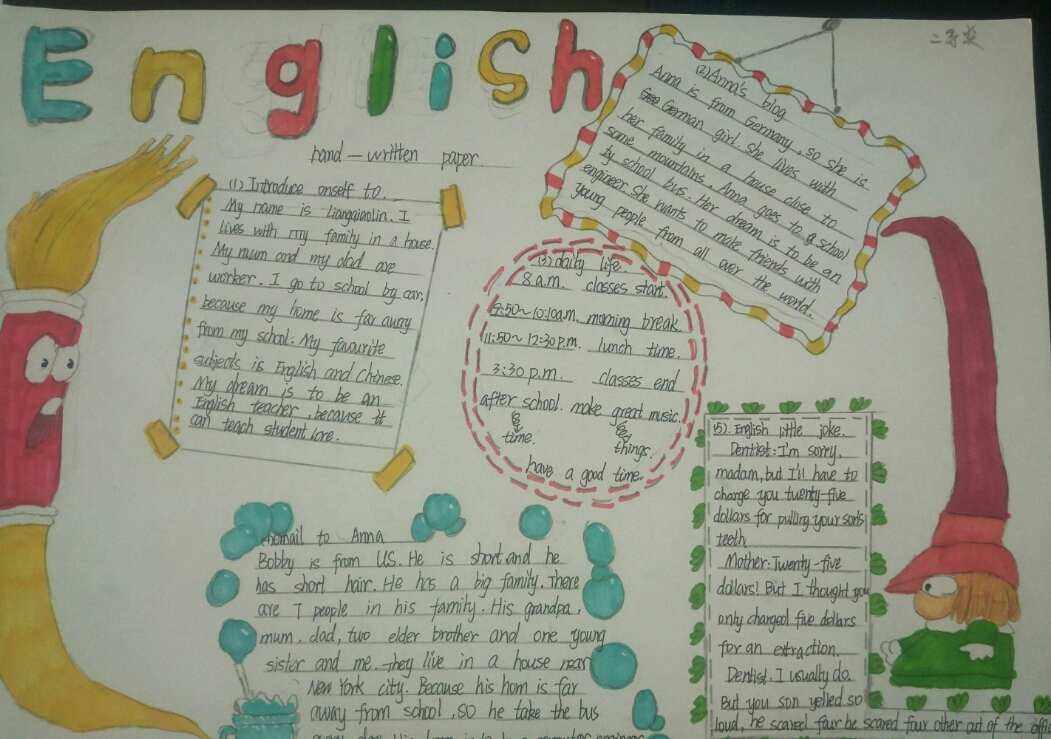 English
hand-written paper
(1) Introduce onself to.
My name is liangqiaolin. I
lives with my family in a house.
My mum and my dad are
worker. I go to school by car,
because my home is far away
from my school. My favourite
subjects is English and Chinese.
My dream is to be an
English teacher, because it
can teach student lore.
(2) Anna's blog
Anna is from Germany, so she is
German girl she lives with
her family in a house close to
some mountains. Anna goes to a school
by school bus. Her dream is to be an
engineer. She wants to make friends with
young people from all over the world.
(3) daily life.
8 a.m. classes start.
9:50~10:10a.m. morning break
11:50~12:30p.m. lunch time.
3:30 p.m. classes end
after school. make great music.
time. things.
have a good time.
to Anna
Bobby is from US. He is short and he
has short hair. He has a big family. There
are 7 people in his family. His grandpa,
mum, dad, two elder brother and one young
sister and me. they live in a house near
New York city. Because his hom is far
away from school, so he take the bus
(5). English little joke.
Dentist: I'm sorry,
madam, but I'll have to
charge you twenty-five
dollars for pulling your son's
teeth
Mother: Twenty-five
dollars! But I thought you
only charged five dollars
for an extraction.
Dentist. I usually do.
But you son yelled so
loud, he scared four be scared four other out of the offi